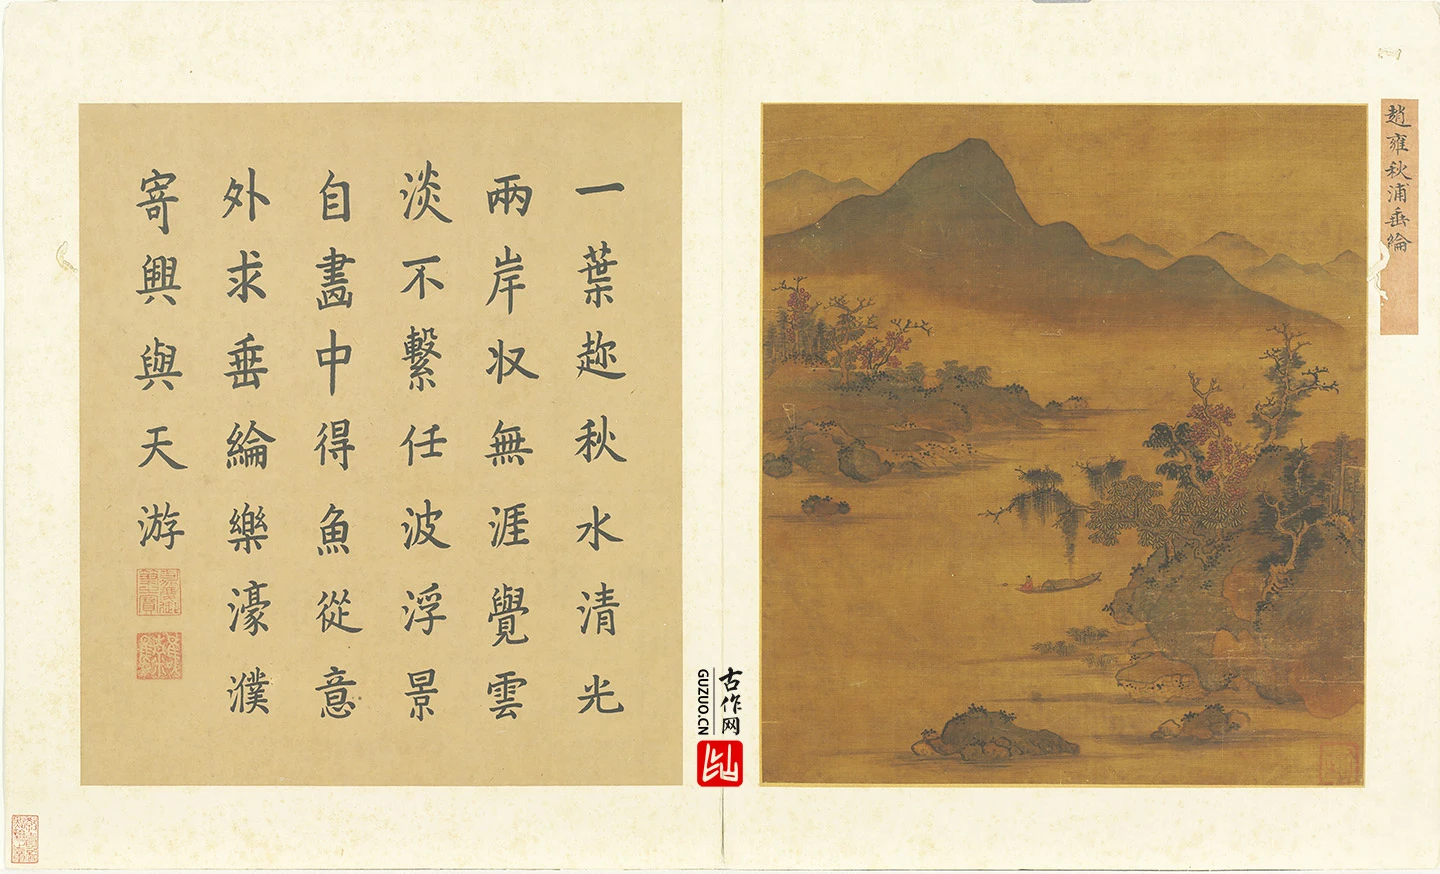 趙雍秋浦垂綸
一葉趂秋水清光
兩岸収無涯覺雲
淡不繫任波浮景
自畫中得魚從意
外求垂綸樂濠濮
寄興與天游
古作网
GUZUO.CN